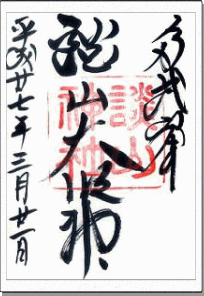 多武峯
談山大明神
談山神社
平成廿七年三月廿一日